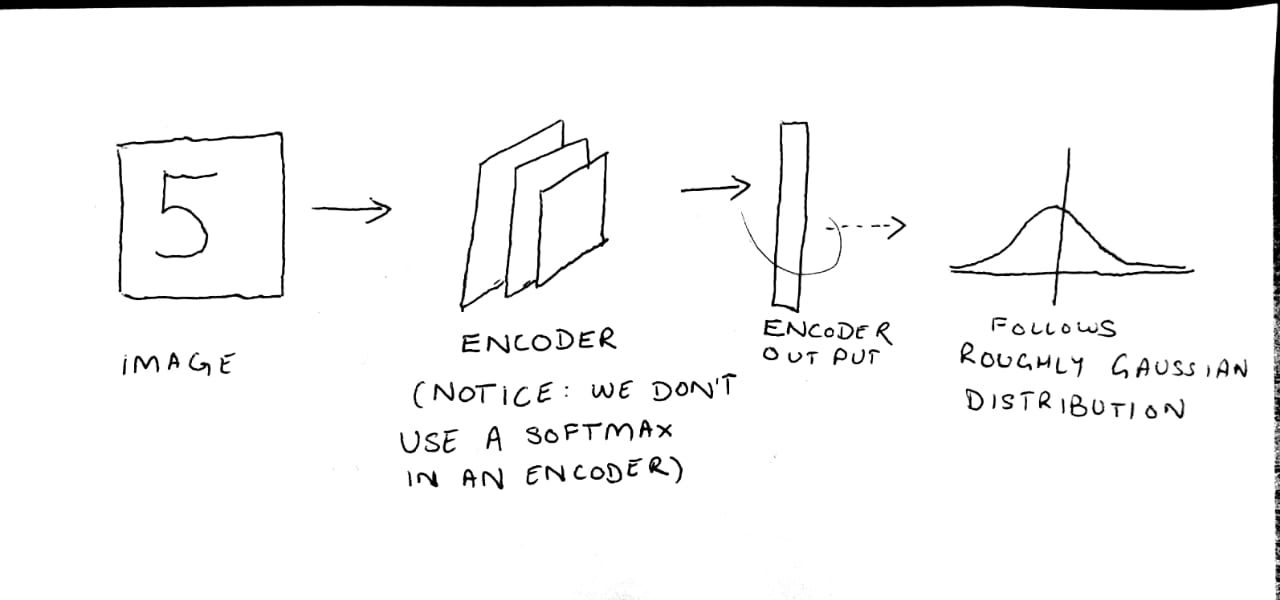 5
IMAGE
ENCODER
(NOTICE: WE DON'T
USE A SOFTMAX
IN AN ENCODER)
ENCODER
OUTPUT
FOLLOWS
ROUGHLY GAUSSIAN
DISTRIBUTION